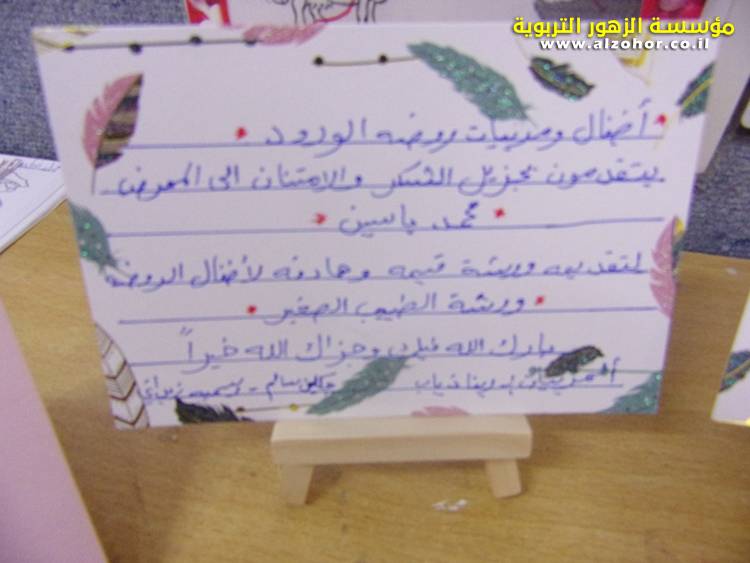 مؤسسة الزهور التربوية
www.alzohor.co.il
أضفال ومربيات روضه الورود
يتقدمون بجزيل الشكر والامتنان الى الممرض
محمد ياسين
لتقديمه ورشة قيمه وهادفه لأضفال الروضه
ورشة الطبيب الصغير
بارك الله فيك وجزاك الله خيراً
المربيات: دينا ذياب سالم